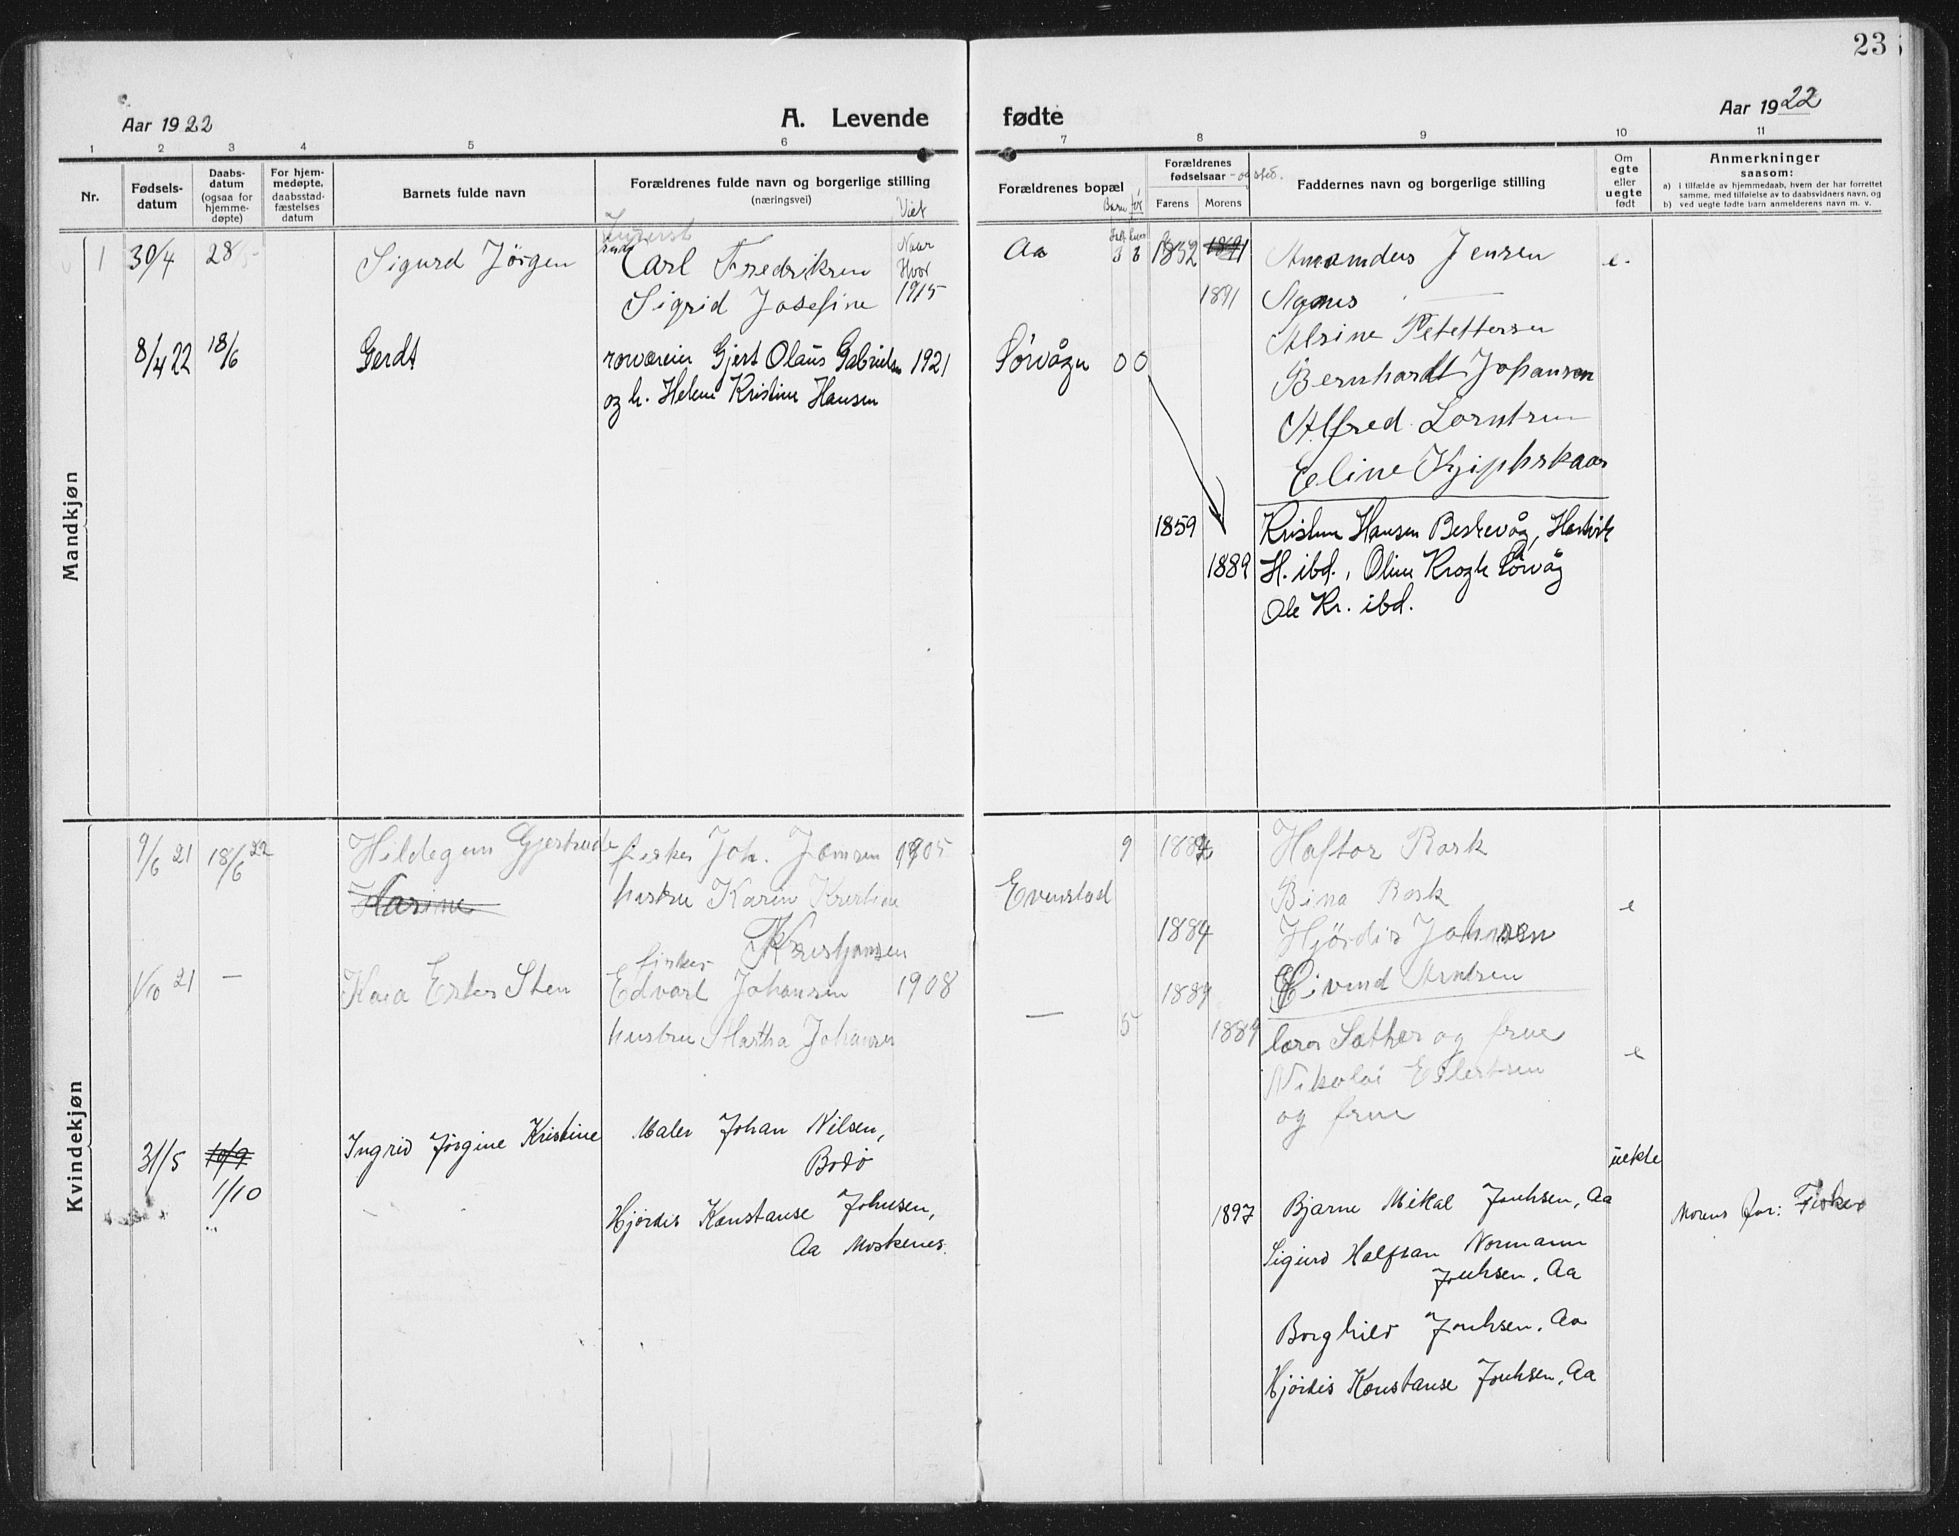 23
Aar 1922
A. Levende
fødte
Aar 1922
1 2 3 4 5 6 7 8 9 10 11
Nr.
Fødsels-
datum
Daabs-
datum
(ogsaa for
hjemme-
døpte)
For hjem-
medøpte,
daabsstad-
fæstelses
datum
Barnets fulde navn
Forældrenes fulde navn og borgerlige stilling
(næringsvei)
Viet
Forældrenes bopæl
Barn
Forældrenes
fødselsaar - og sted.
Farens Morens
Faddernes navn og borgerlige stilling
Om
egte
eller
uegte
født
Anmerkninger
saasom:
a) i tilfælde av hjemmedaab, hvem der har forrettet
samme, med tilføielse av to daabsvidners navn, og
b) ved uegte fødte barn anmelderens navn m. v.
Mandkjøn
1 30/4 28/5 Sigurd Jørgen Carl Fredriksen
Sigrid Josefine
Naar
Hvor
1915
Aa 1852 1891
1891
Amandus Jensen
Agnes
Alvine Petettersen
Bernhardt Johansen
Alfred Lorntsen
Eline
e.
8/4 22 18/6 Gerdt Gjert Olaus Gabrielsen 1921
og h. Helene Kristine Hansen
Sørvågen 0 0
1859
1889
Kristine Hansen
H. ibd., Oline Krogh Sørvåg
Ole Kr. ibd.
Kvindekjøn
9/6 21 18/6 22 Hildegun Gjertrude
Karine
fisker Joh. Jensen 1905
hustru Karin Kristine
Kristjansen
Evenstad 9
1884
Haftor Rask
Bina Rask
Hjørdis Johansen
Eivind Arntsen
e
1/10 21 — Kaia Ester Sten
fisker
Edvart Johansen 1908
hustru Martha Johansen
— 5 1889
1889
lærer Sæther og frue
Nikolai Eilertsen
og frue
e
31/5 10/9
1/10
Ingrid Jørgine Kristine
Maler Johan Nilsen,
Bodø
Hjørdis Konstanse Johnsen,
Aa Moskenes.
1897
Bjarne Mikal Johnsen, Aa
Sigurd Halfdan Normann
Johnsen, Aa
Borghild Johnsen, Aa
Hjørdis Konstanse Johnsen, Aa
uekte
Morens far: Fisker